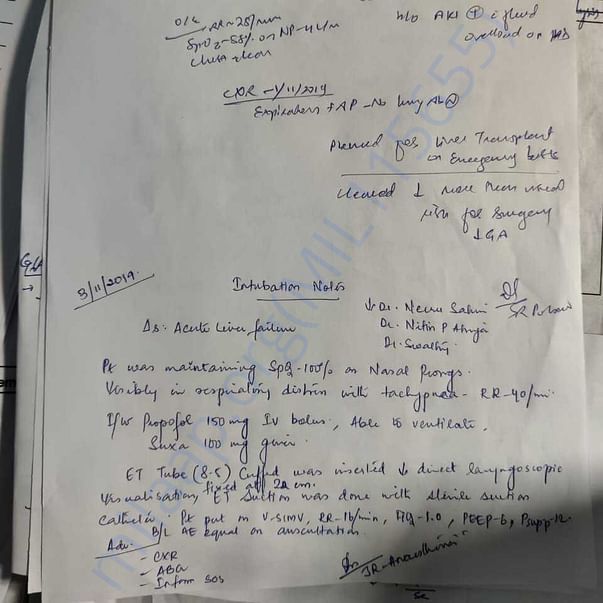 O/E
RR-28/min
SpO2-88% on NP-4L/m
Chest clear
H/o AKI + fluid
overload on
CXR-1/11/2019
Expiratory + AP-No lung
Planned for Liver Transplant
on Emergency basis
Cleared ↓ more than usual
risk for Surgery
↓GA
3/11/2019.
Intubation Notes
↓ Dr.
SR
Dr. Nitin P
Dr. Swathi
Δs: Acute Liver failure
Pt was maintaining SpO2-100% on Nasal Prongs.
Visibly in respiratory distress with tachypnea - RR-40/min.
I/V/O Propofol 150 mg IV bolus, Able to ventilate,
Suxa 100 mg given.
ET Tube (8.5) Cuffed was inserted ↓ direct laryngoscopic
visualisation, fixed at cm. ET Suction was done with sterile suction
catheter. Pt put on V-SIMV, RR-16/min, FiO2-1.0, PEEP-6, Psupp-12.
B/L AE equal on auscultation.
Adv:
- CXR
- ABG
- Inform SOS
JR-Anaesthesia
milaap.org(MIL